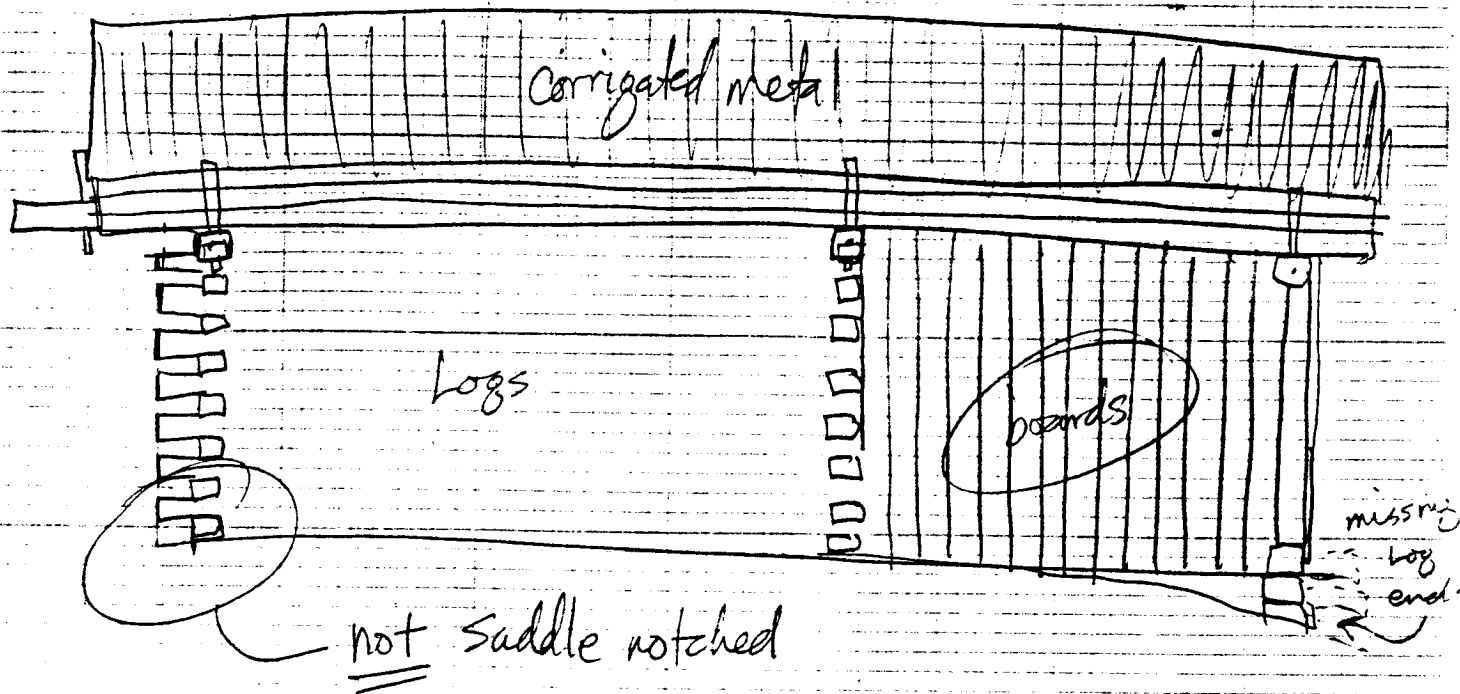 Corrigated metal
Logs
boards
missing
Log
end.
not Saddle notched